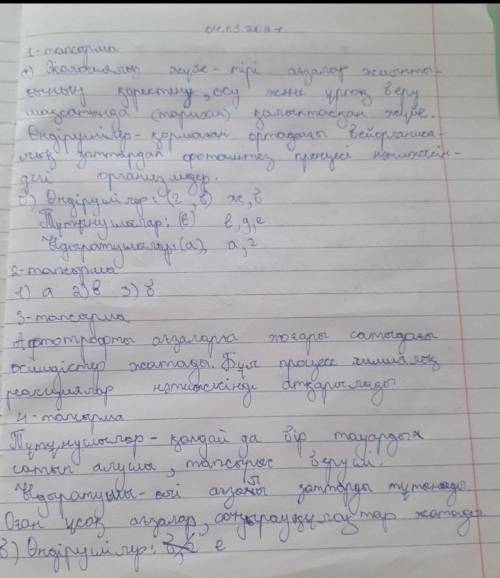 1-тапсырма
а) Экологиялық жүйе - тірі ағзалар жиынты-
ғының қоректену, өсу және ұрпақ беру
мақсатында (тарихи) қалыптасқан жүйе.
Өндірушілер - қоршаған ортадағы бейорганика-
лық заттардан фотосинтез процесі нәтижесін-
дегі организмдер.
Өндірушілер: (2, в) ж, б
Тұтынушылар: (в) в, д, е
Ыдыратушылар: (а), а, г
2-тапсырма
1) а 2) в 3) б
3-тапсырма
Афтотрофты ағзаларға жоғары сатыдағы
өсімдіктер жатады. Бұл процесс химиялық
реакциялар нәтижесінде атқарылады
4-тапсырма
Тұтұнушылар - қандай да бір тауардың
сатып алушы, тапсырыс беруші.
Ыдыратушы - өлі ағзаны заттарды тұтынады.
Оған ұсақ ағзалар, саңырауқұлақтар жатады
в) Өндірушілер: е